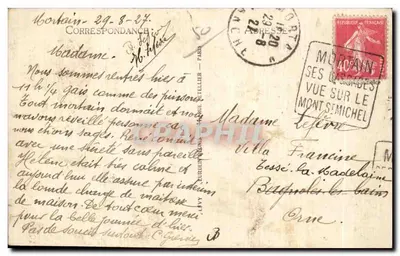 Mortain - 29-8-27.
CORRESPONDANCE
ADRESSE
Madame.
Nous sommes rentrés hier à
11 h ½ gais comme des pinsons.
Tout mortain dormait et nous
avons réveillé personne
nous étions sages.
avec une sûreté sans pareille
Hélène était très calme et
aujourd'hui elle assure par intérim
la lourde charge de maîtresse
de maison. De tout cœur merci
pour la belle journée d'hier.
Pas de soucis surtout
Madame
Lefèvre
Villa Francine
Tessé-la-Madeleine
Bagnoles les bains
Orne
MORTAIN
MANCHE
20
29-8
27
MORTAIN
SES CASCADES
VUE SUR LE
MONT ST MICHEL
REPUBLIQUE FRANÇAISE
40c